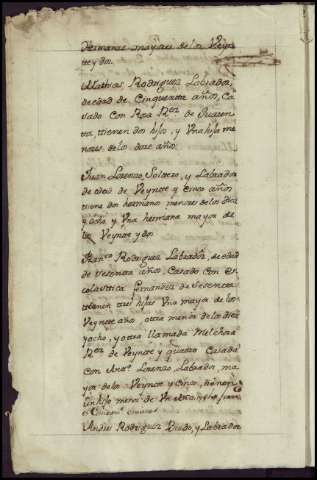 Hermanas mayores de los Veyn
te y dos.
Mathias Rodriguez Labrador,
de edad de Cinquenta años, Ca
sado con Rosa Rez de Quaren
ta, tienen dos hijos, y Una hija me
nores de los doze años.
Juan Lorenzo Soltero, y Labrador
de edad de Veynte y cinco años
tiene dos hermanos menores de los diez
y ocho y Una hermana mayor de
los Veynte y dos
Franco Rodriguez Labrador, de edad
de Sesenta años, Casado con Es
colastica Fernandez de Sesenta
tienen tres hijas Una mayor de los
Veynte años, otra menor de los diez
yocho, y otra llamada Melchora
Rez de Veynte y quatro Casada
con Anto Lorenzo Labrador, ma
yor de los Veynte y cinco, tienen
un hijo menor de
Andres Rodriguez Viudo, y Labrador